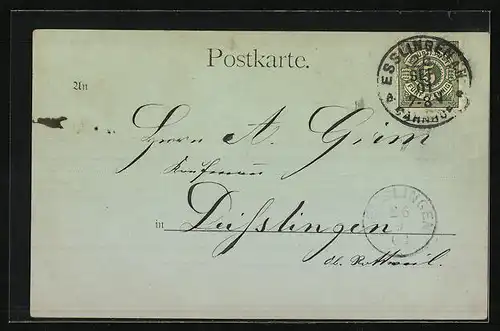 Postkarte.
ESSLINGEN A/N
BAHNHOF
An
Herrn A. Grim
Kaufmann
in Deißlingen
b. Rottweil.
26